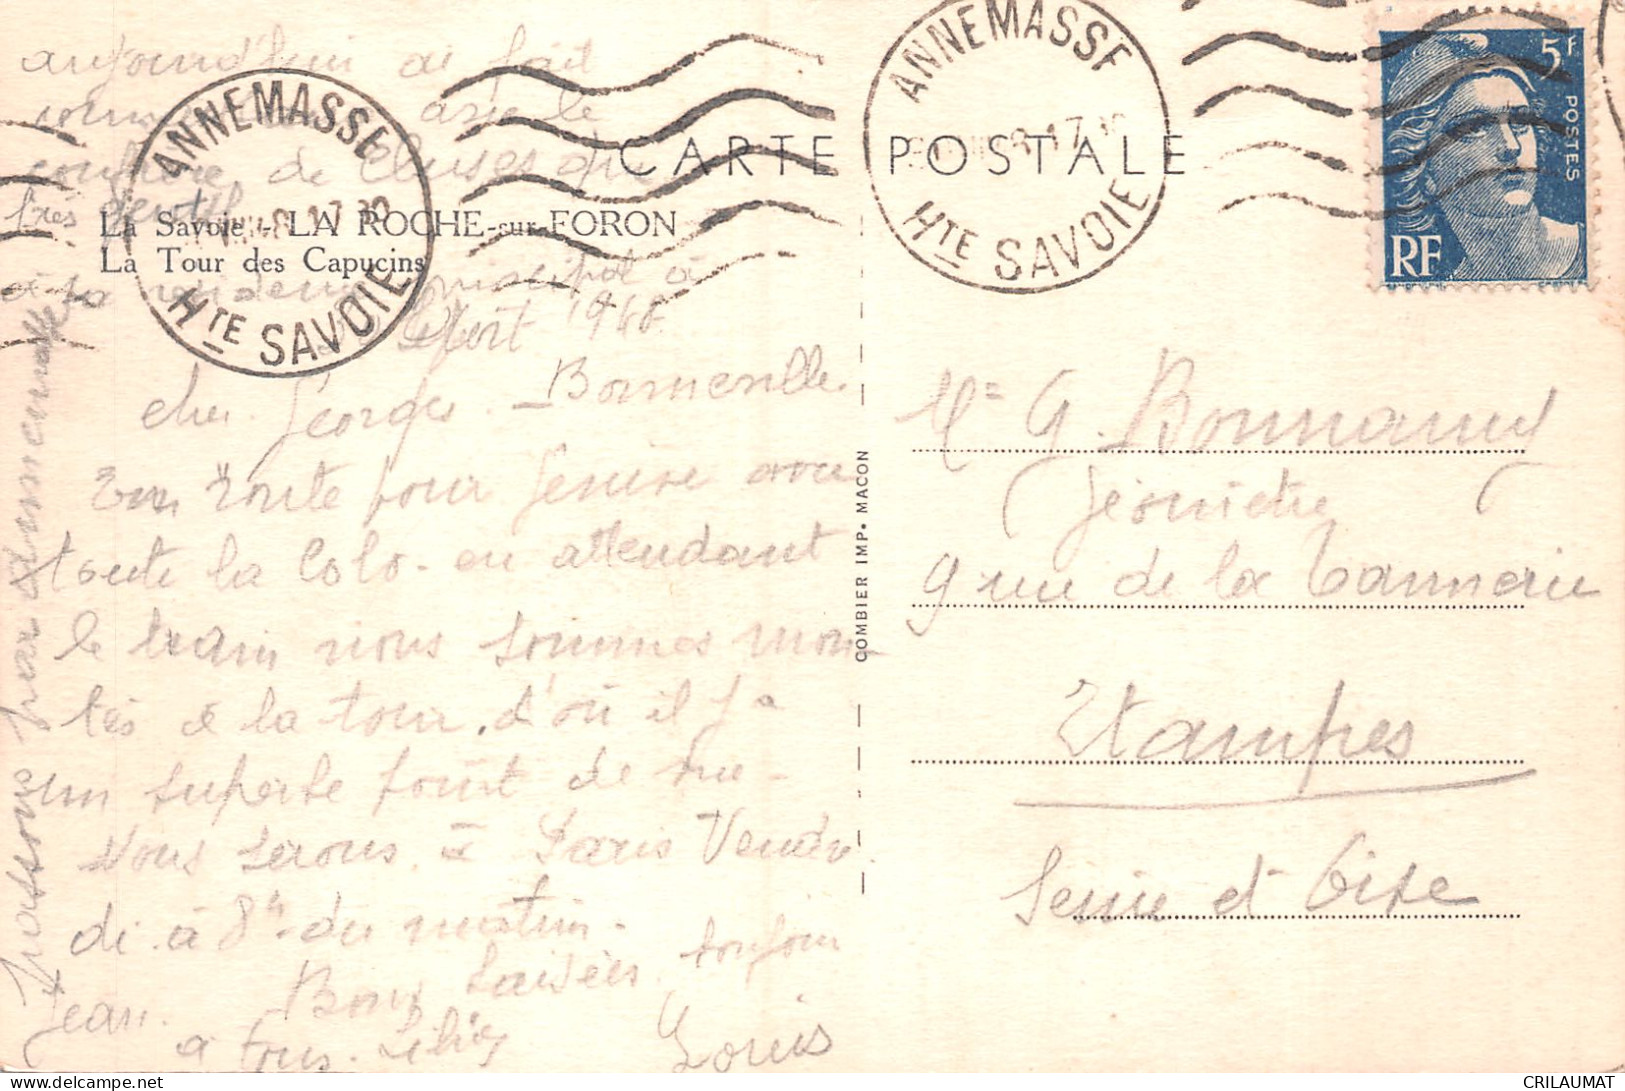 aujourd'hui ai fait
confrère de Cluses
très gentil
CARTE POSTALE
La Savoie - LA ROCHE-sur-FORON
La Tour des Capucins
ANNEMASSE
HTE SAVOIE
ANNEMASSE
HTE SAVOIE
5F
POSTES
RF
1948
cher Georges. Bonneville
En route pour Genève avec
toute la Colo. en attendant
le train nous sommes mon-
tés à la tour. d'où il y a
un superbe point de vue -
Nous serons à Paris Vendre
di à 8h du matin.
Bons baisers toujours
Jean.
à tous. Lili
Louis
passons par Annemasse
COMBIER IMP. MACON
Mr G. Bonnamy
Géomètre
9 rue de la Tannerie
Etampes
Seine et Oise
CRILAUMAT